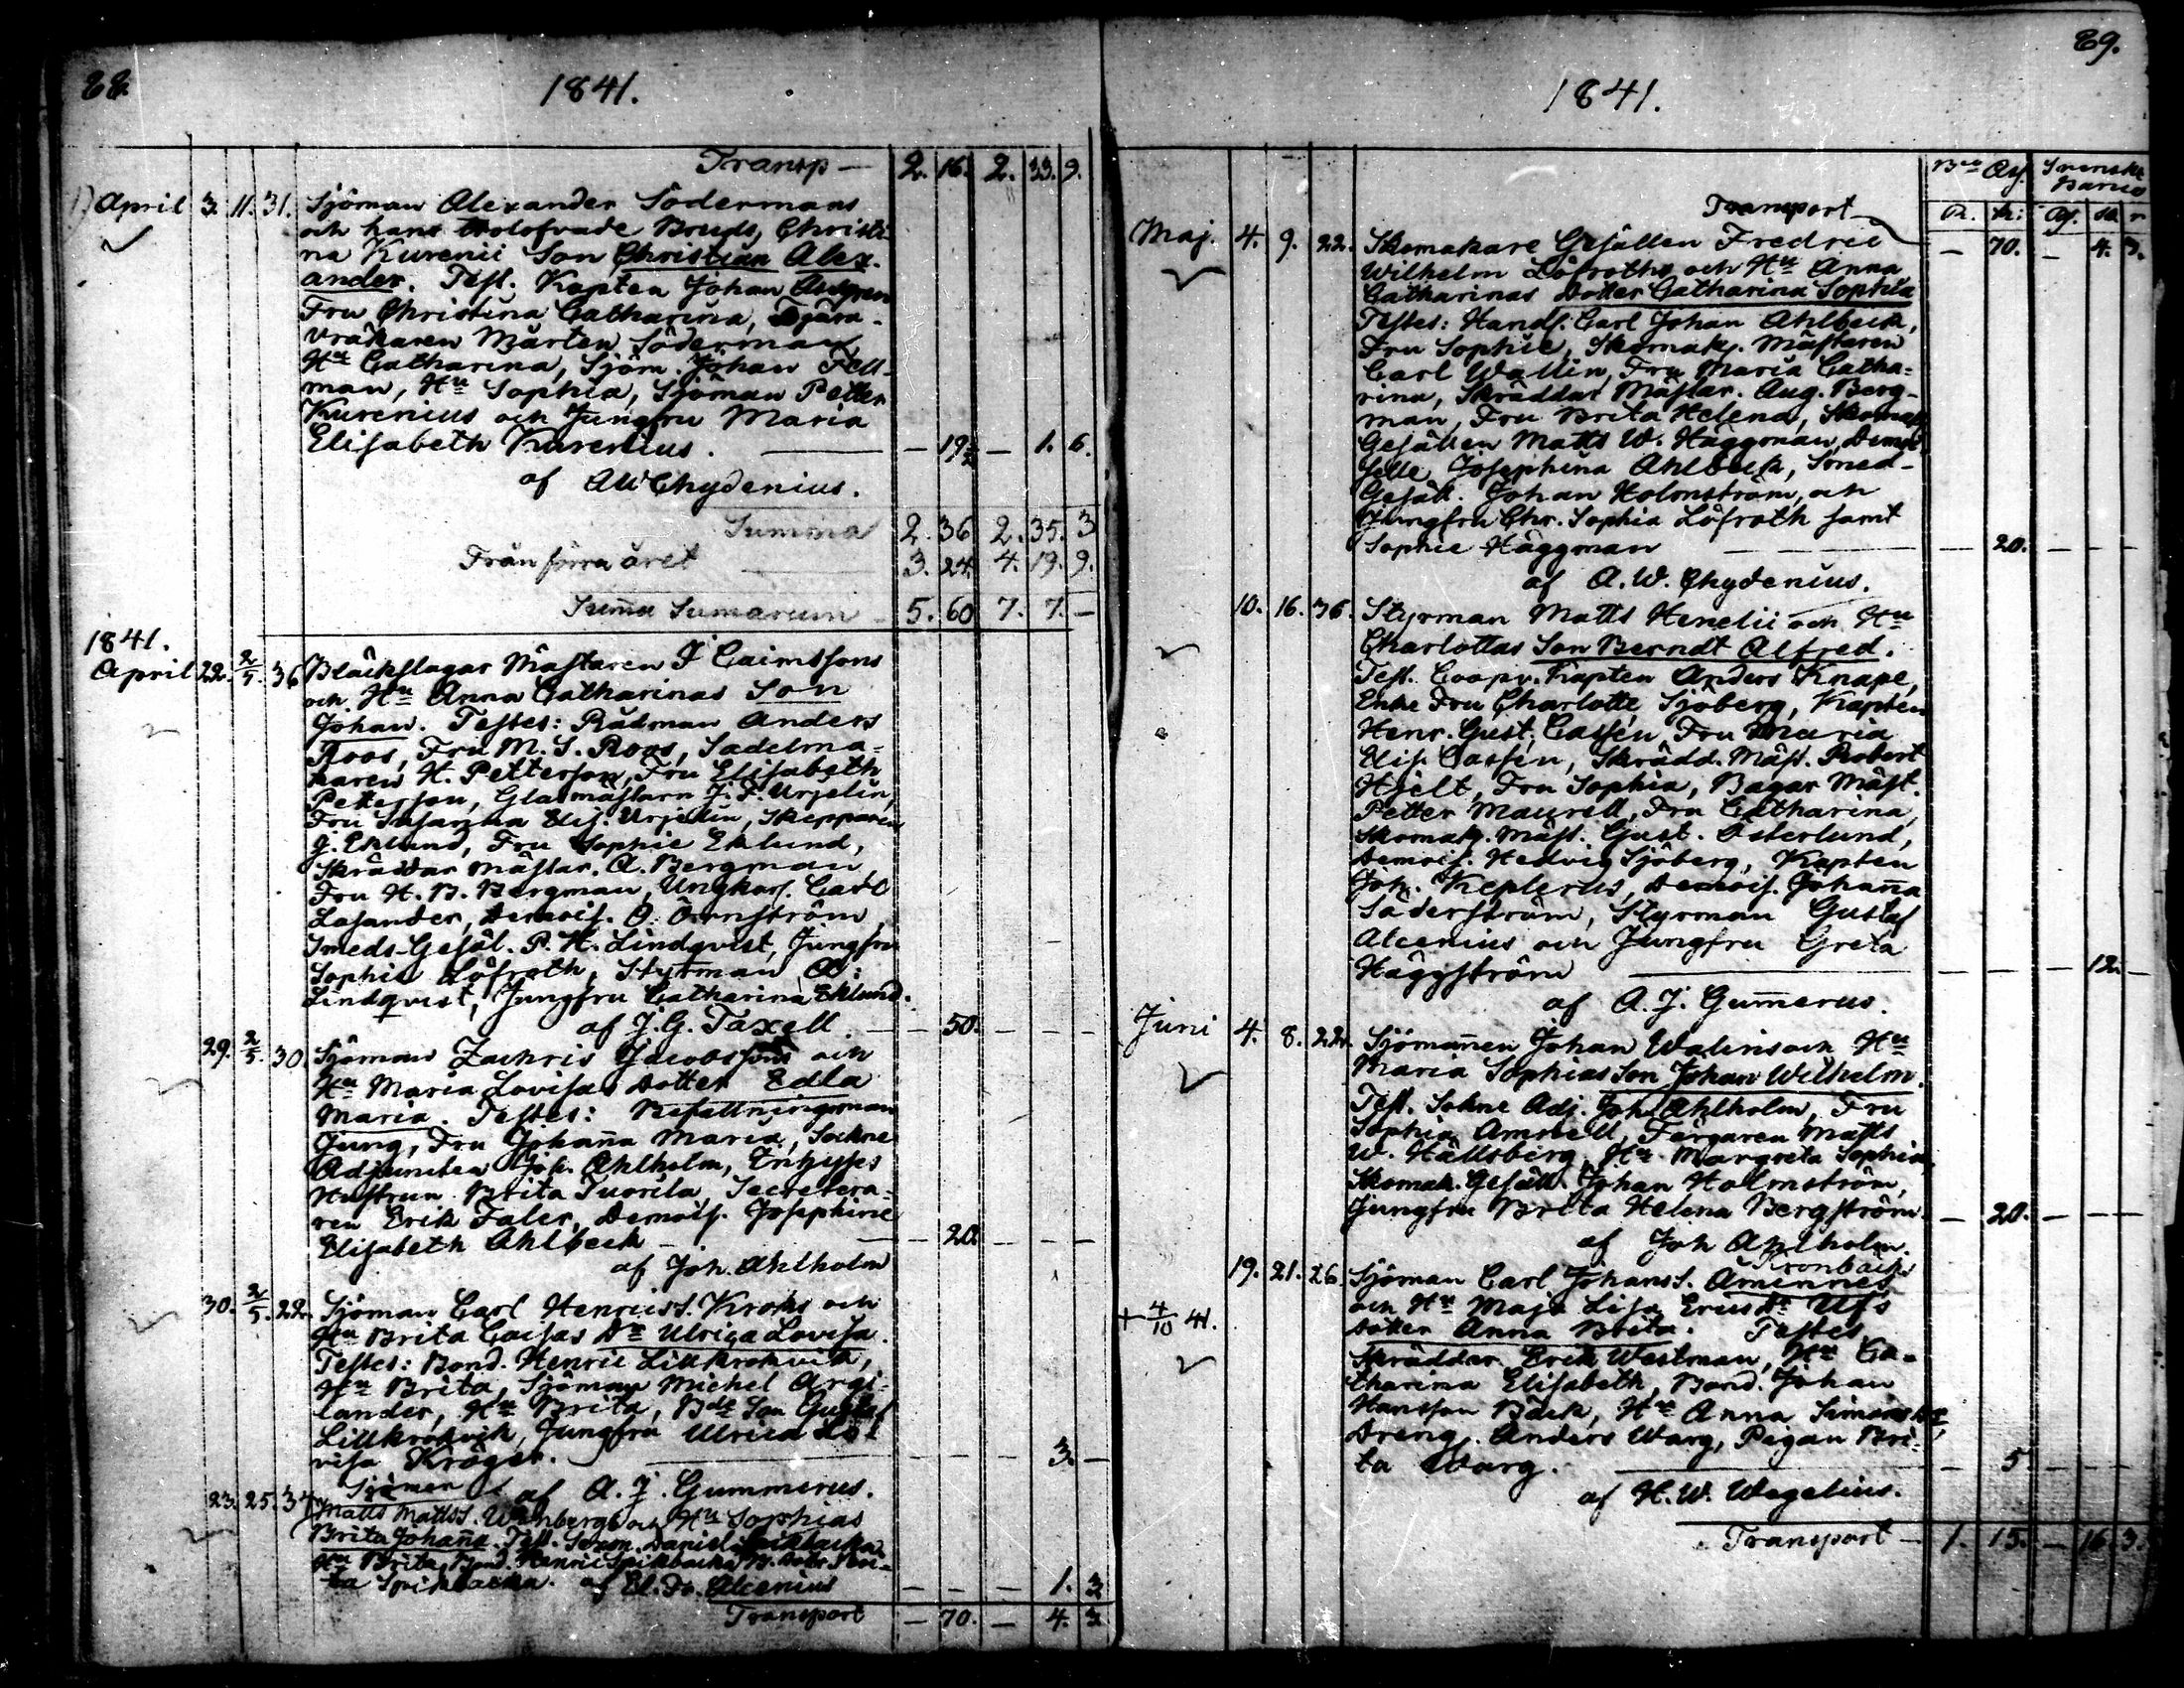 88.
1841.
Transp — 2. 16. 2. 33. 9.
1) April 3. 11. 31. Sjöman Alexander Södermans
och hans trolofvade Bruds, Christi-
na Kurenii Son Christian Alex-
ander. Test. Kapten Johan
Fru Christina Catharina, Tjära-
vräkaren Mårten Söderman,
Hu Catharina, Sjöm. Johan Fell-
man, Hu Sophia, Sjöman Petter
Kurenius och Jungfru Maria
Elisabeth Kurenius. — — 19½ — 1. 6.
af AW Chydenius.
Summa 2. 36 2. 35. 3
Från förra året 3. 24. 4. 19. 9.
Summa Sumarum 5. 60 7. 7. —
1841.
April 22. 2/5. 36 Bläckslagar Mästaren J Caimssons
och Hu Anna Catharinas Son
Johan. Testes: Rådman Anders
Roos, Fru M. S. Roos, Sadelma-
karen H. Petterson, Fru Elisabeth
Petterson, Glasmästarn J. F. Urjelin,
Fru Susanna Elis. Urjelin, Skepparen
J. Eklund, Fru Sophie Eklund,
Skräddar mästar. A. Bergman
Fru H. B. Bergman, Ungkarl. Carl
Lasander, Demois. O. Örnström,
Smeds-Gesäl. P. H. Lindqvist, Jungfru
Sophia Löfroth, Styrman A:
Lindqvist, Jungfru Catharina Eklund.
af J. G. Taxell — — 50. — — —
29. 2/5. 30 Sjöman Zachris Jacobssons och
Hu Maria Lovisas Dotter Edla
Maria. Testes: Befallningsman
Ljung, Fru Johanna Maria, Sockne
Adjuncten Joh. Ahlholm,
Hustrun Brita Tuorila, Secretera-
ren Erik Faler, Demois. Josephine
Elisabeth Ahlbeck — — 20. — — —
af Joh. Ahlholm
30. 2/5. 22. Sjöman Carl Henricss. Kroks och
Hu Brita Caisas Dr Ulrica Lovisa.
Testes: Bond. Henric Lillkrokvik,
Hu Brita, Sjöman Michel Argi-
lander, Hu Brita, Bde Son Gustaf
Lillkrokvik, Jungfru Ulrica Lo-
visa Kröger. — — — — 3. —
af A. J. Gummerus.
Sjöman
23. 25. 34 Matts Mattss. Winbergs och Hu Sophias
Brita Johanna. Test. Daniel Spikbacka
Hu Brita, Bond. Henric Spikbacka, B. Dottr
Spikbacka. af El. Fr. Alcenius — — — 1. 3
Transport — 70. — 4. 3
89.
1841.
Bco As. Svenska
R. k:
Transport
Maj. 4. 9. 22. Skomakare Gesällen Fredric — 70. — 4. 3.
Wilhelm Löfroths och Hu Anna
Catharinas Dotter Catharina Sophia
Testes: Handl. Carl Johan Ahlbeck,
Fru Sophie, Skomak. Mästaren
Carl Wallin, Fru Maria Catha-
rina, Skräddar Mästar. Aug. Berg-
man, Fru Brita Helena, Skomak.
Gesällen Matts W. Häggman, Demoi-
selle Josephina Ahlbeck, Smed-
Gesäll. Johan Holmström, och
Jungfru Chr. Sophia Löfroth samt
Sophie Häggman — — 20. — — —
af A. W. Chydenius.
10. 16. 36. Styrman Matts Henelii och Hu
Charlottas Son Berndt Alfred.
Test. Coopv. Kapten Anders Knape,
Enke Fru Charlotte Sjöberg, Kapten
Henr. Gust. Cassén, Fru Maria
Elis. Cassén, Skrädd. Mäst. Robert
Hjelt, Fru Sophia, Bagar Mäst.
Petter Maurell, Fru Catharina,
Skomak. Mäst. Gust. Österlund,
Demois. Hedvig Sjöberg, Kapten
Joh. Keplerus, Demois. Johanna
Söderström, Styrman Gustaf
Alcenius och Jungfru Greta
Häggström — — — — 12. —
af A. J. Gummerus.
Juni 4. 8. 22. Sjömannen Johan Walins och Hu
Maria Sophias Son Johan Wilhelm.
Test. Sokne Adj. Joh. Ahlholm, Fru
Sophia Amnell, Färgaren Matts
W. Hällsberg, Hu Margreta Sophia,
Skomak. Gesäll. Johan Holmström,
Jungfru Brita Helena Bergström. — 20. — — —
af Joh Ahlholm.
Kronbäck
19. 21. 26. Sjöman Carl Johanss.
och Hu Maja Lisa Ericsdr Ufs
+ 4/10 41. Dotter Anna Brita. Testes
Skräddar Erik Westman, Hu Ca-
tharina Elisabeth, Bond. Johan
Hansson Bäck, Hu Anna Simonsdr,
Dreng. Anders Warg, Pigan Bri-
ta Warg. — — 5 — — —
af H. W. Wegelius.
Transport — 1. 15. — 16. 3.